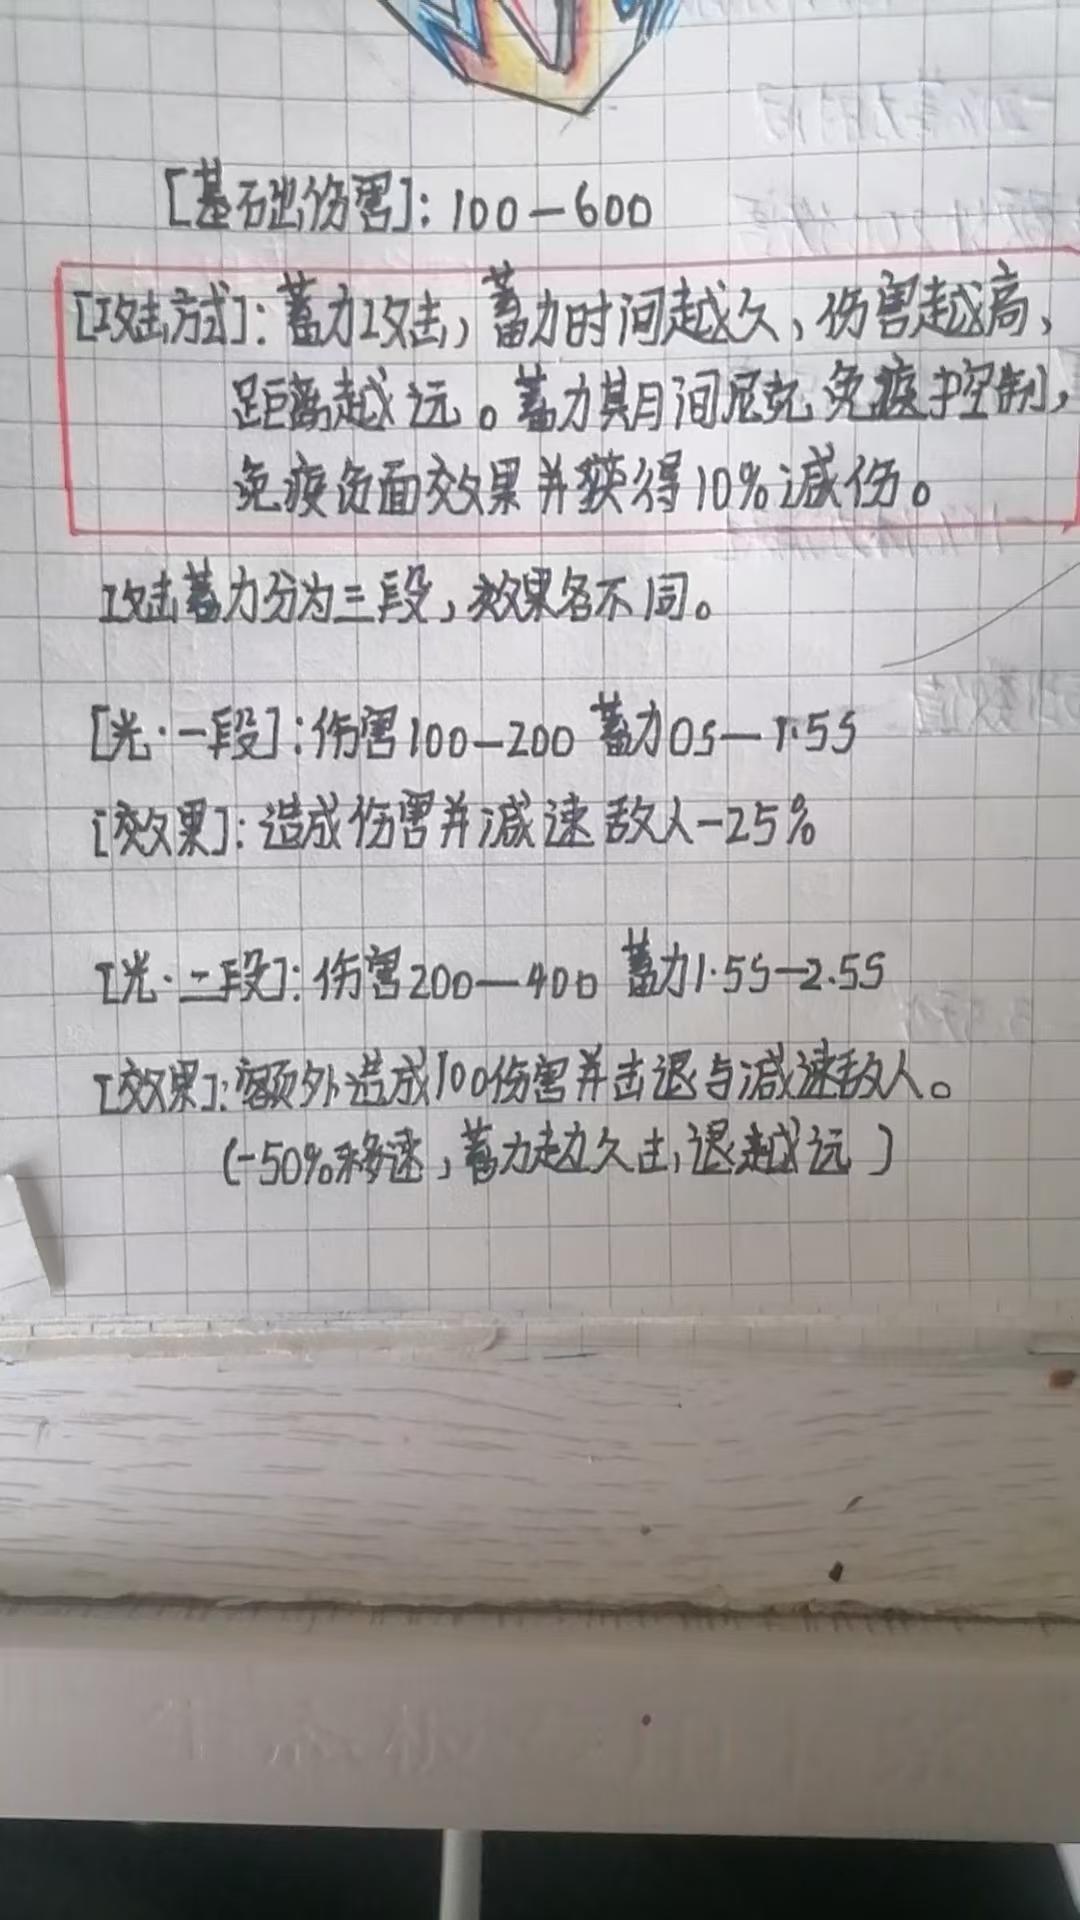 [基石出伤害]:100—600
[攻击方式]:蓄力攻击,蓄力时间越久,伤害越高,
距离越远。蓄力期间尼克免疫控制,
免疫负面效果并获得10%减伤。
攻击蓄力分为三段,效果各不同。
[光·一段]:伤害100—200 蓄力0S—1.5S
[效果]:造成伤害并减速敌人-25%
[光·二段]:伤害200—400 蓄力1.5S—2.5S
[效果]:额外造成100伤害并击退与减速敌人。
(-50%移速,蓄力越久击退越远)